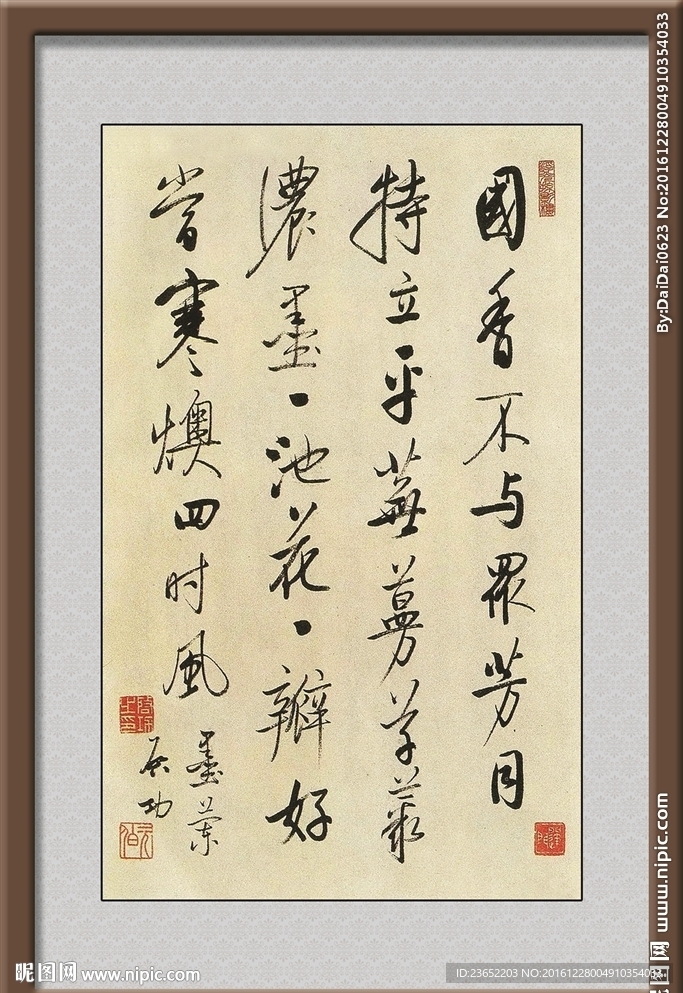 國香不与眾芳同
特立平蕪蔓草叢
濃墨一池花一瓣好
嘗寒燠四时風
墨蘭
启功
元白
By:DaiDai0623 No:20161228004910354033
昵图网 www.nipic.com
昵图网 www.nipic.com
ID:23652203 NO:20161228004910354033